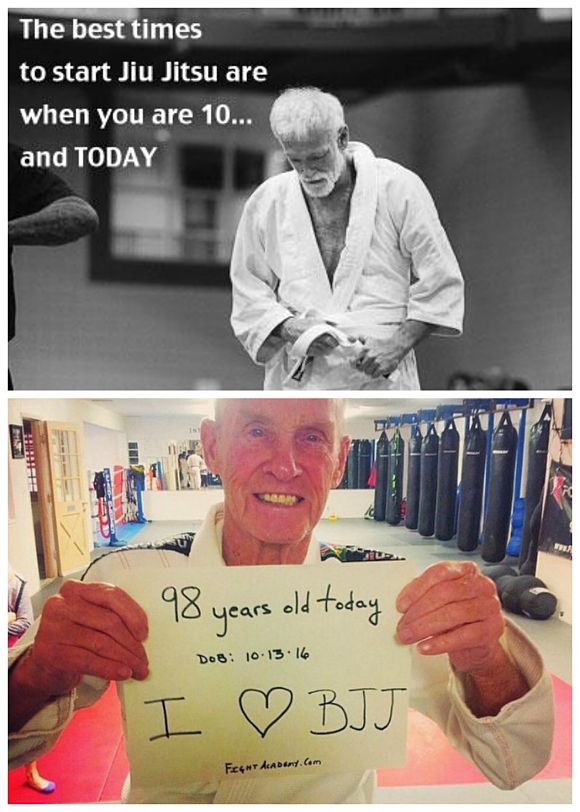 The best times
to start Jiu Jitsu are
when you are 10...
and TODAY
98 years old today
DOB: 10.13.16
I ♡ BJJ
FightAcademy.Com